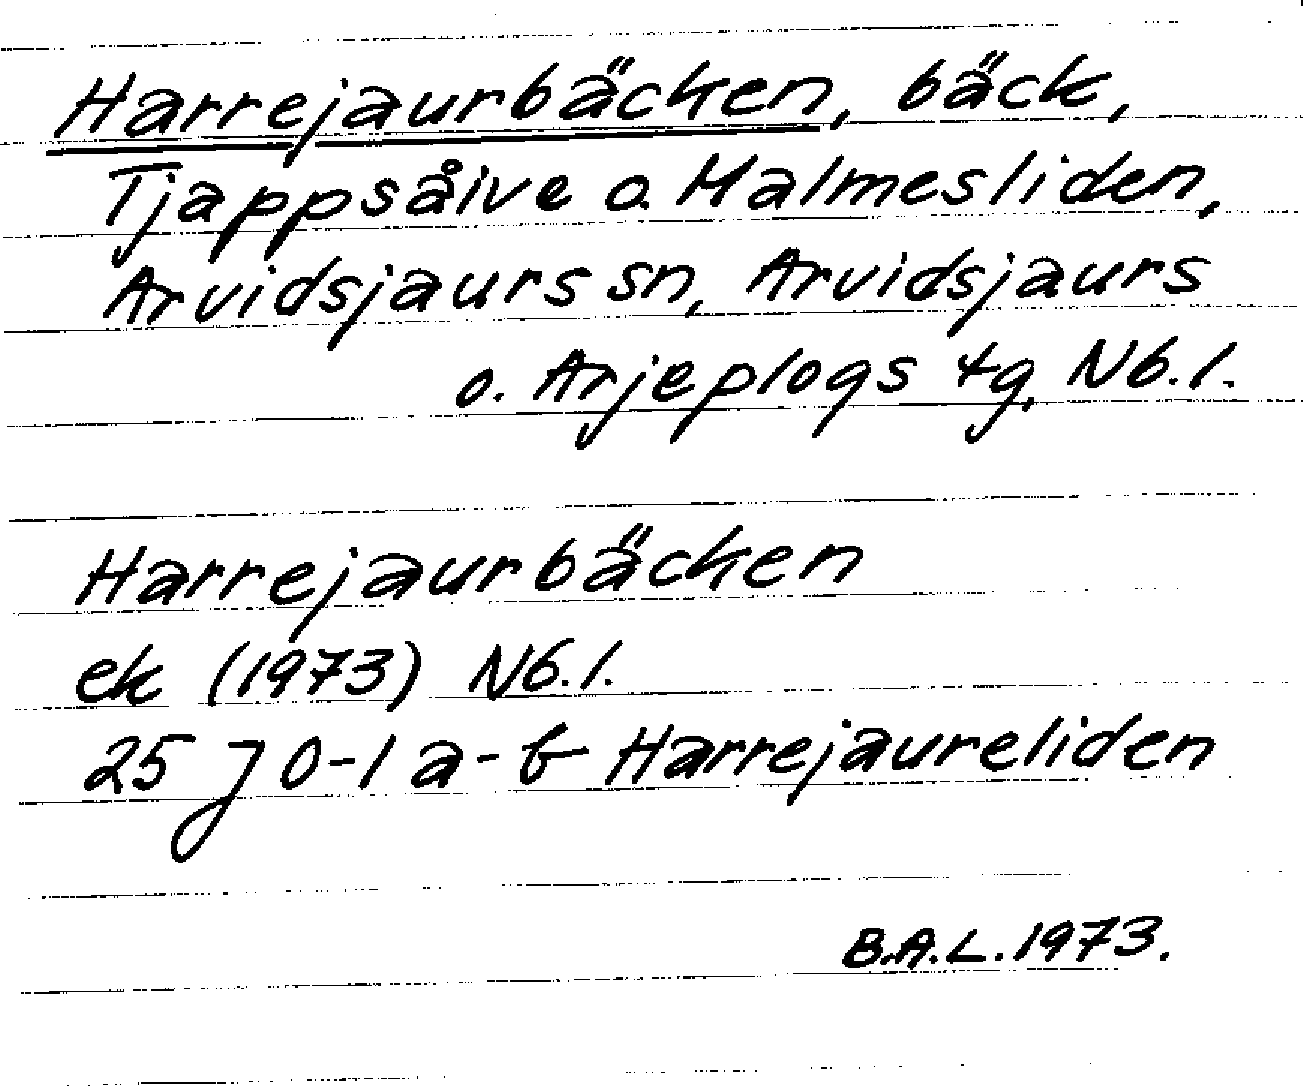 Harrejaurbäcken, bäck,
Tjappsåive o. Malmesliden,
Arvidsjaurs sn, Arvidsjaurs
o. Arjeplogs tg, Nb.l.
Harrejaurbäcken
ek (1973) Nb.l.
25 J 0-1 a-b Harrejaureliden
B.A.L. 1973.